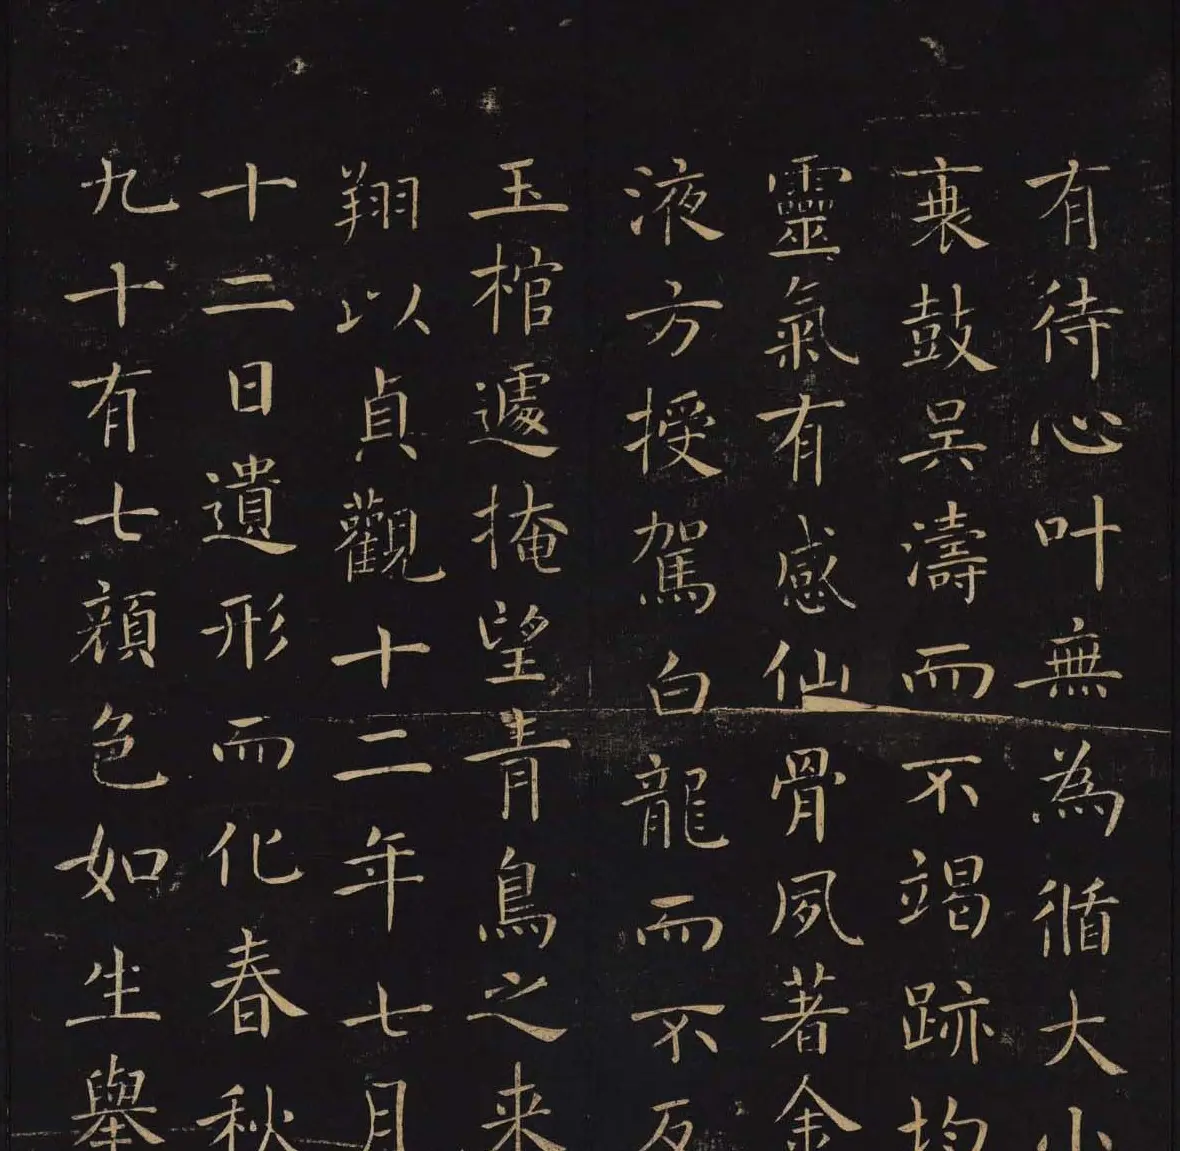 有待心叶無為循大小
襄鼓吴濤而不竭跡均
靈氣有感仙骨夙著金
液方授駕白龍而不反
玉棺遽掩望青鳥之来
翔以貞觀十二年七月
十二日遺形而化春秋
九十有七顔色如生舉